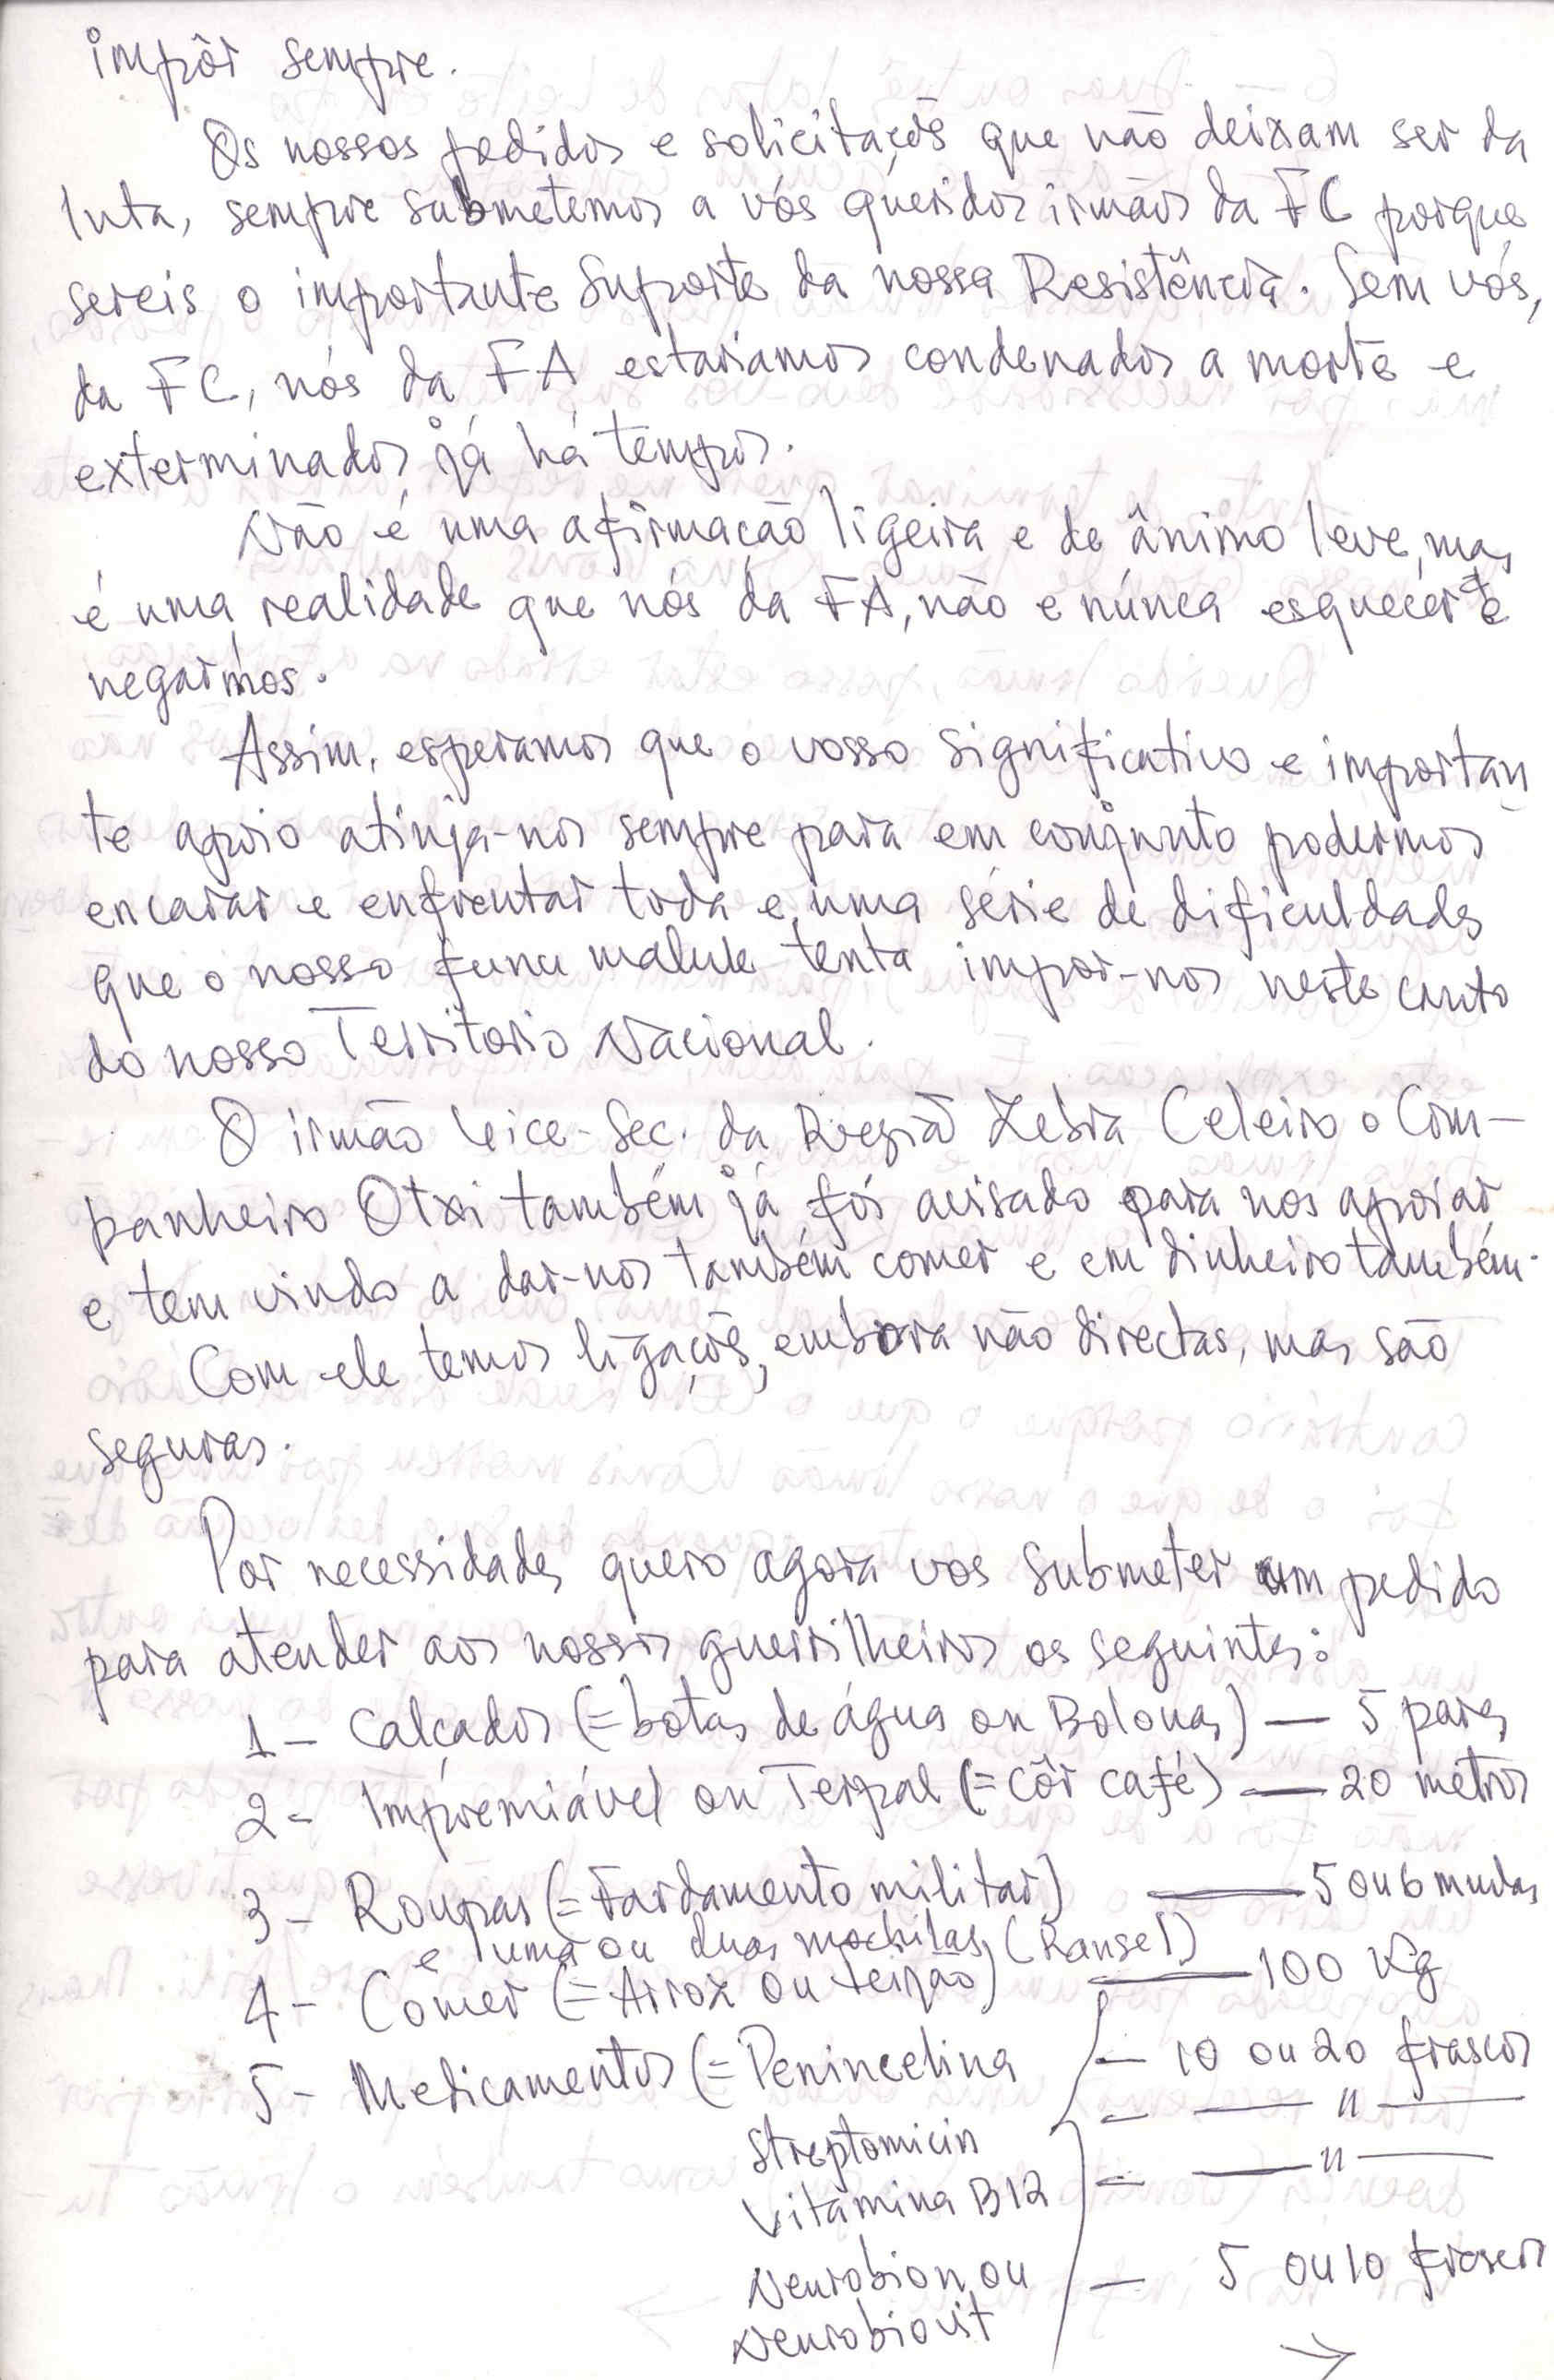 impôr sempre.
Os nossos pedidos e solicitações que não deixam ser da
luta, sempre submetemos a vós queridos irmãos da FC porque
sereis o importante Suporte da nossa Resistência. Sem vós,
da FC, nós da FA estariamos condenados a morte e
exterminados já há tempos.
Não é uma afirmação ligeira e de ânimo leve, mas
é uma realidade que nós da FA, não e núnca esquecer e
negarmos.
Assim, esperamos que o vosso significativo e importan
te apoio atinja-nos sempre para em conjunto podermos
encarar e enfrentar toda e uma série de dificuldades
que o nosso funu maluk tenta impor-nos neste canto
do nosso Territorio Nacional.
O irmão Vice-Sec. da Região Zebra Celeiro o Com-
panheiro Otxi também já foi avisado para nos apoiar
e tem vindo a dar-nos também comer e em dinheiro também.
Com ele temos ligações, embora não directas, mas são
seguras.
Por necessidades quero agora vos submeter um pedido
para atender aos nossos guerrilheiros os seguintes:
1- Calçados (= botas de água ou Bolonas) — 5 pares
2- Impremiável ou Terpal (= côr café) — 20 metros
3- Roupas (= Fardamento militar) — 5 ou 6 mudas
e uma ou duas mochilas (Ransel)
4- Comer (= Arroz ou feijão) — 100 Kg
5- Medicamentos (= Penincelina — 10 ou 20 frascos
Streptomicin — — " —
Vitamina B12 — — " —
Neurobion ou — 5 ou 10 frascos
Neurobiovit
→